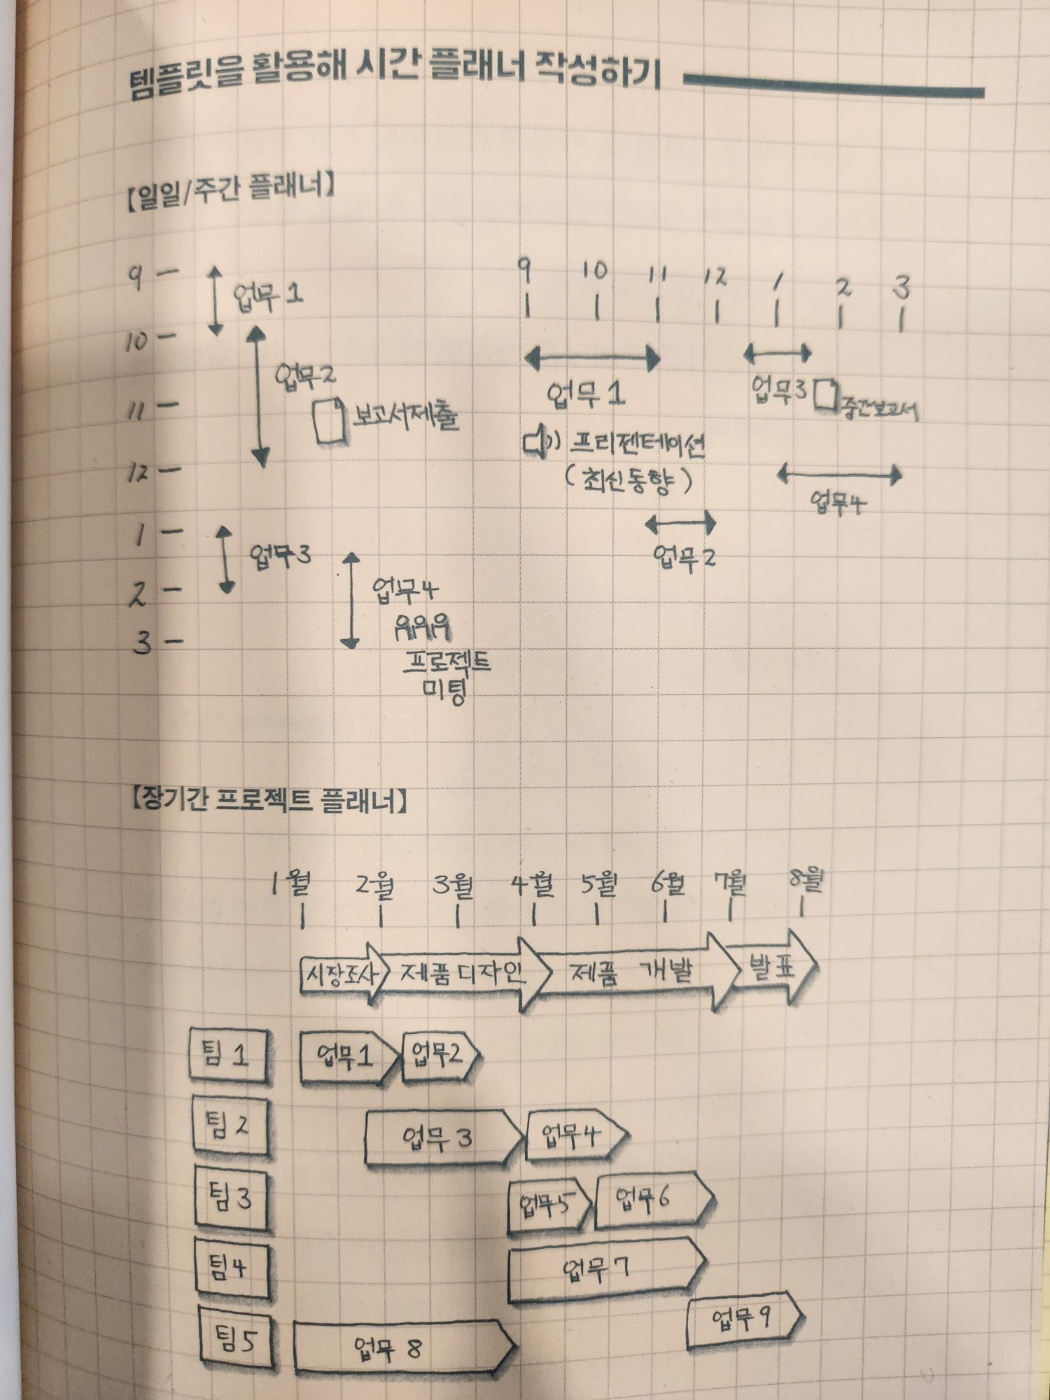 템플릿을 활용해 시간 플래너 작성하기
【일일/주간 플래너】
9
업무1
10
업무2
11
보고서제출
12
1
업무3
2
업무4
3
프로젝트
미팅
9 10 11 12 1 2 3
업무1
업무3 중간보고서
프리젠테이션
(최신동향)
업무4
업무2
【장기간 프로젝트 플래너】
1월 2월 3월 4월 5월 6월 7월 8월
시장조사 제품디자인 제품 개발 발표
팀1 업무1 업무2
팀2 업무3 업무4
팀3 업무5 업무6
팀4 업무7
업무9
팀5 업무8